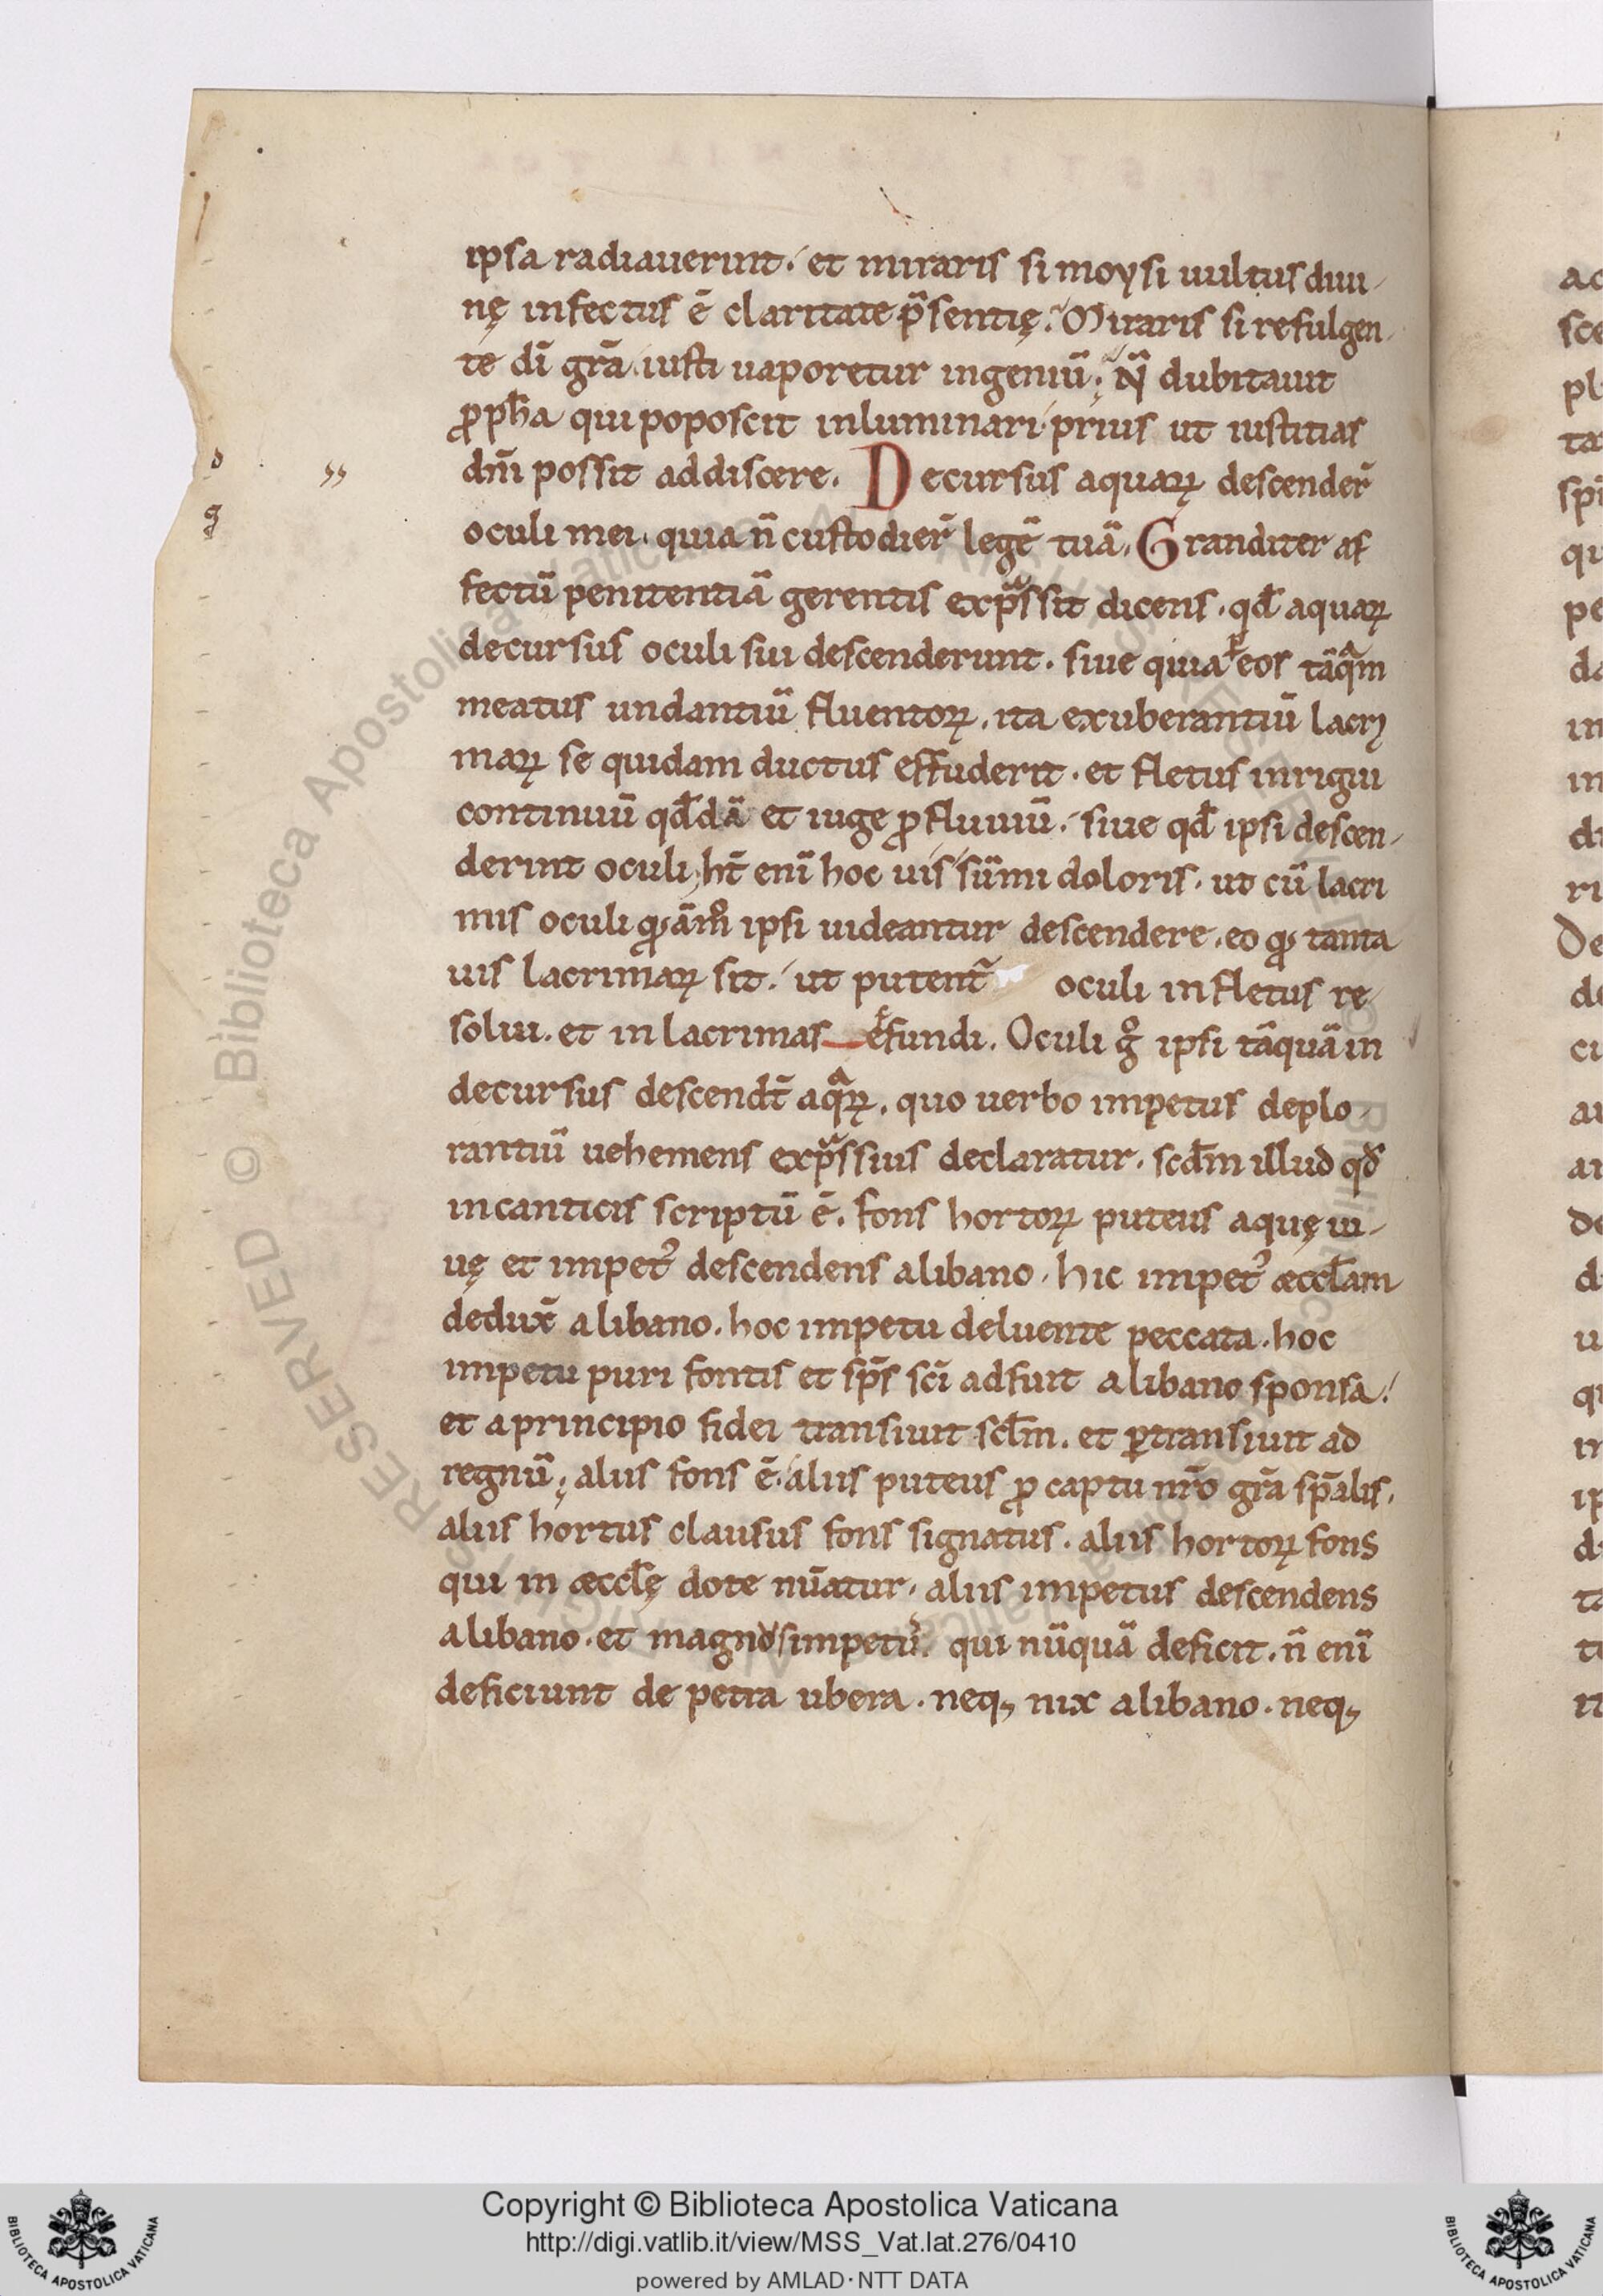 ipsa radiauerunt. et miraris si moysi uultus diui-
nę infectus ē claritate p̄sentię. Miraris si refulgen-
te dī grā iusti uaporetur ingeniū. N̄ dubitauit
ꝓph̄a qui poposcit inluminari prius ut iustitias
dn̄i possit addiscere. Decursus aquaꝝ descender̄
oculi mei. quia n̄ custodier̄ legē tuā. Granditer af
fectū penitentiā gerentis exp̄ssit dicens. qd̄ aquaꝝ
decursus oculi sui descenderunt. siue quia ꝑ eos tāqᵃm
meatus undantiū fluentoꝝ. ita exuberantiū lacry
maꝝ se quidam ductus effuderit. et fletus inrigui
continuū qd̄dā et iuge ꝓfluuiū. siue qd̄ ipsi descen-
derint oculi. ht̄ enī hoc uis sūmi doloris. ut cū lacri
mis oculi ꝙāmͦ ipsi uideantur descendere. eo ꝙ tanta
uis lacrimaꝝ sit. ut putent᷑ oculi in fletus re
solui. et in lacrimas effundi. Oculi gͦ ipsi tāquā in
decursus descendt̄ aqᵃꝝ. quo uerbo impetus deplo-
rantiū uehemens exp̄ssius declaratur. scd̄m illud qd̄
in canticis scriptū ē. fons hortoꝝ puteus aquę ui-
uę et impet᷒ descendens alibano. hic impet᷒ æccl̄am
dedux̄ alibano. hoc impetu deluente peccata. hoc
impetu puri fontis et sp̄s sc̄i adfuit alibano sponsa.
et a principio fidei transiuit scl̄m. et ꝑtransiuit ad
regnū. alius fons ē. alius puteus ꝓ captu nr̄o grā sp̄alis.
alius hortus clausus fons signatus. alius hortoꝝ fons
qui in æccl̄ę dote nūatur. alius impetus descendens
alibano. et magnos impet᷒. qui nūquā deficit. n̄ enī
deficiunt de petra ubera. neq; nix alibano. neq;
Copyright © Biblioteca Apostolica Vaticana
http://digi.vatlib.it/view/MSS_Vat.lat.276/0410
powered by AMLAD·NTT DATA